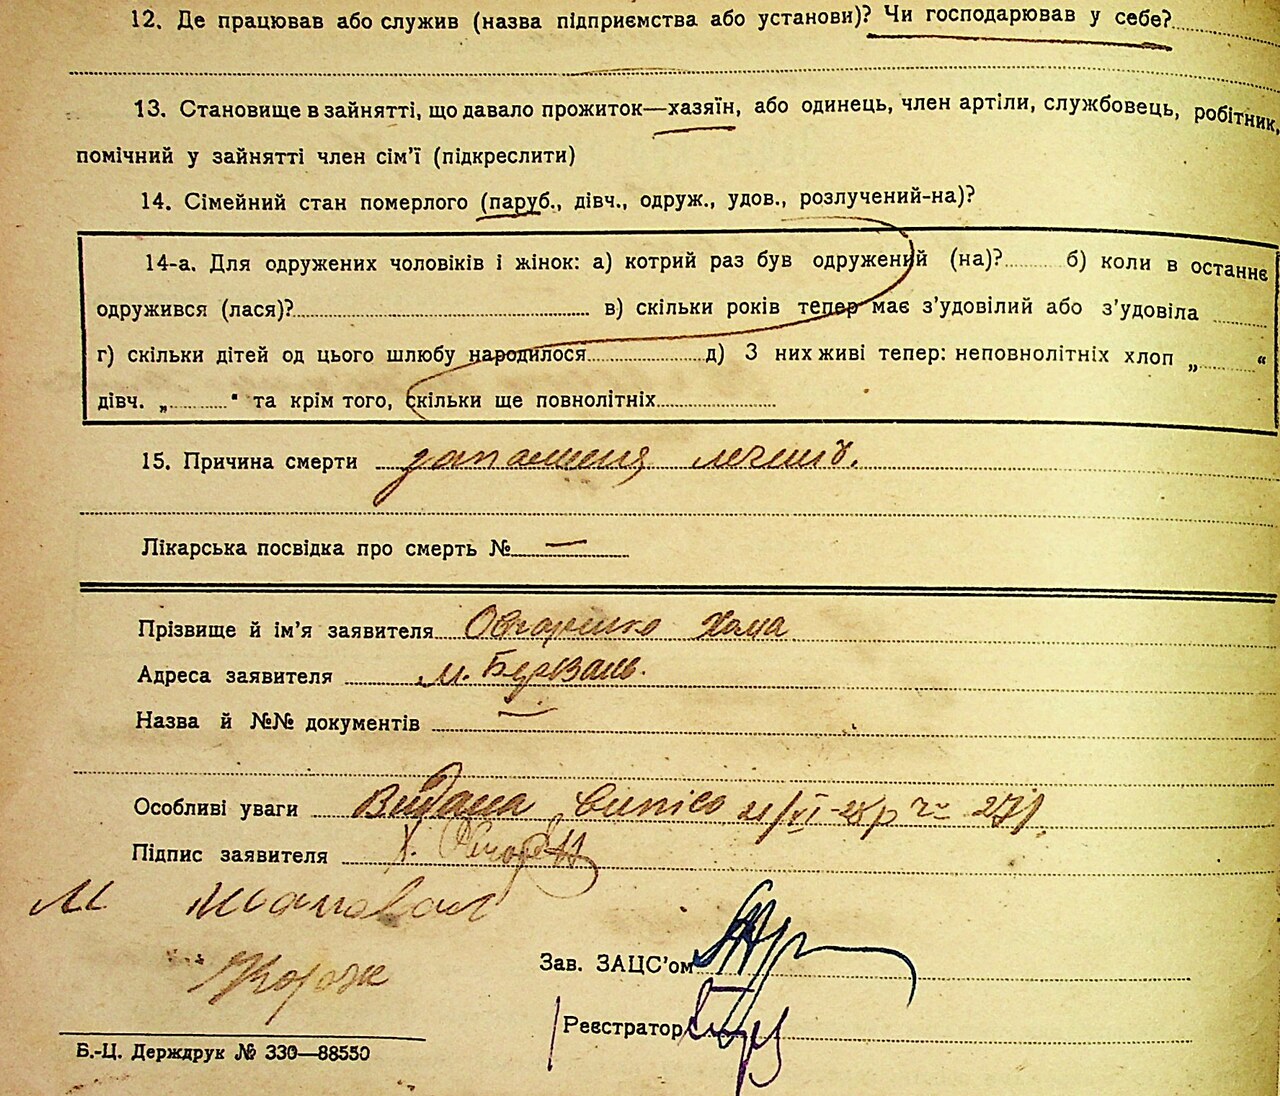 12. Де працював або служив (назва підприємства або установи)? Чи господарював у себе?
13. Становище в зайнятті, що давало прожиток—хазяїн, або одинець, член артіли, службовець, робітник,
помічний у зайнятті член сім'ї (підкреслити)
14. Сімейний стан померлого (паруб., дівч., одруж., удов., розлучений-на)?
14-а. Для одружених чоловіків і жінок: а) котрий раз був одружений (на)? б) коли в останнє
одружився (лася)? в) скільки років тепер має з'удовілий або з'удовіла
г) скільки дітей од цього шлюбу народилося д) З них живі тепер: неповнолітніх хлоп „ “
дівч. „ “ та крім того, скільки ще повнолітніх
15. Причина смерти запалення
Лікарська посвідка про смерть № —
Прізвище й ім'я заявителя Овчаренко Хома
Адреса заявителя м.
Назва й №№ документів —
Особливі уваги Видана
Підпис заявителя Х.
М Шаповал
Зав. ЗАЦС'ом
Реєстратор
Б.-Ц. Держдрук № 330—88550